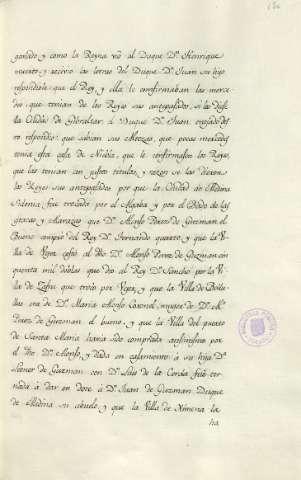 ganado y como la Reyna vió al Duque Dn. Henrique
muerto y recivio las letras del Duque Dn. Juan su hijo
respondiole que el Rey, y ella le confirmaban las merce
des que tenian de los Reyes sus antepasados, si le diese
la Ciudad de Gibraltar: el Duque Dn. Juan
respondio que sabian sus Altezas, que pocas mercedes
tenia esta casa de Niebla, que le confirmasen los Reyes,
que las tenian con justos titulos, y razon se las dieron
los Reyes sus antepasados por que la Ciudad de Medina
Sidonia fue trocada por el Algaba y por el Rodo de las
gracas y Marazas que Dn. Alonso Perez de Guzman el
Bueno compró del Rey Dn. Fernando quarto, y que la Vi
lla de Vejer costó al dho. Dn. Alonso Perez de Guzman cin
quenta mil doblas que dio al Rey Dn. Sancho por la Vi
lla de Zafra que trocó por Vejer, y que la Villa de Bolla
llos era de Da. Maria Alonso Coronel, muger de Dn. Al.
Perez de Guzman el bueno, y que la Villa del puerto
de Santa Maria havia sido comprada ansimismo por
el dho. Dn. Alonso, y dada en casamiento á su hija Da.
Leonor de Guzman con Dn. Luis de la Cerda fué tor
nada á dar en dote á Dn. Juan de Guzman Duque
de Medina su abuelo, y que la Villa de Ximena la
ha